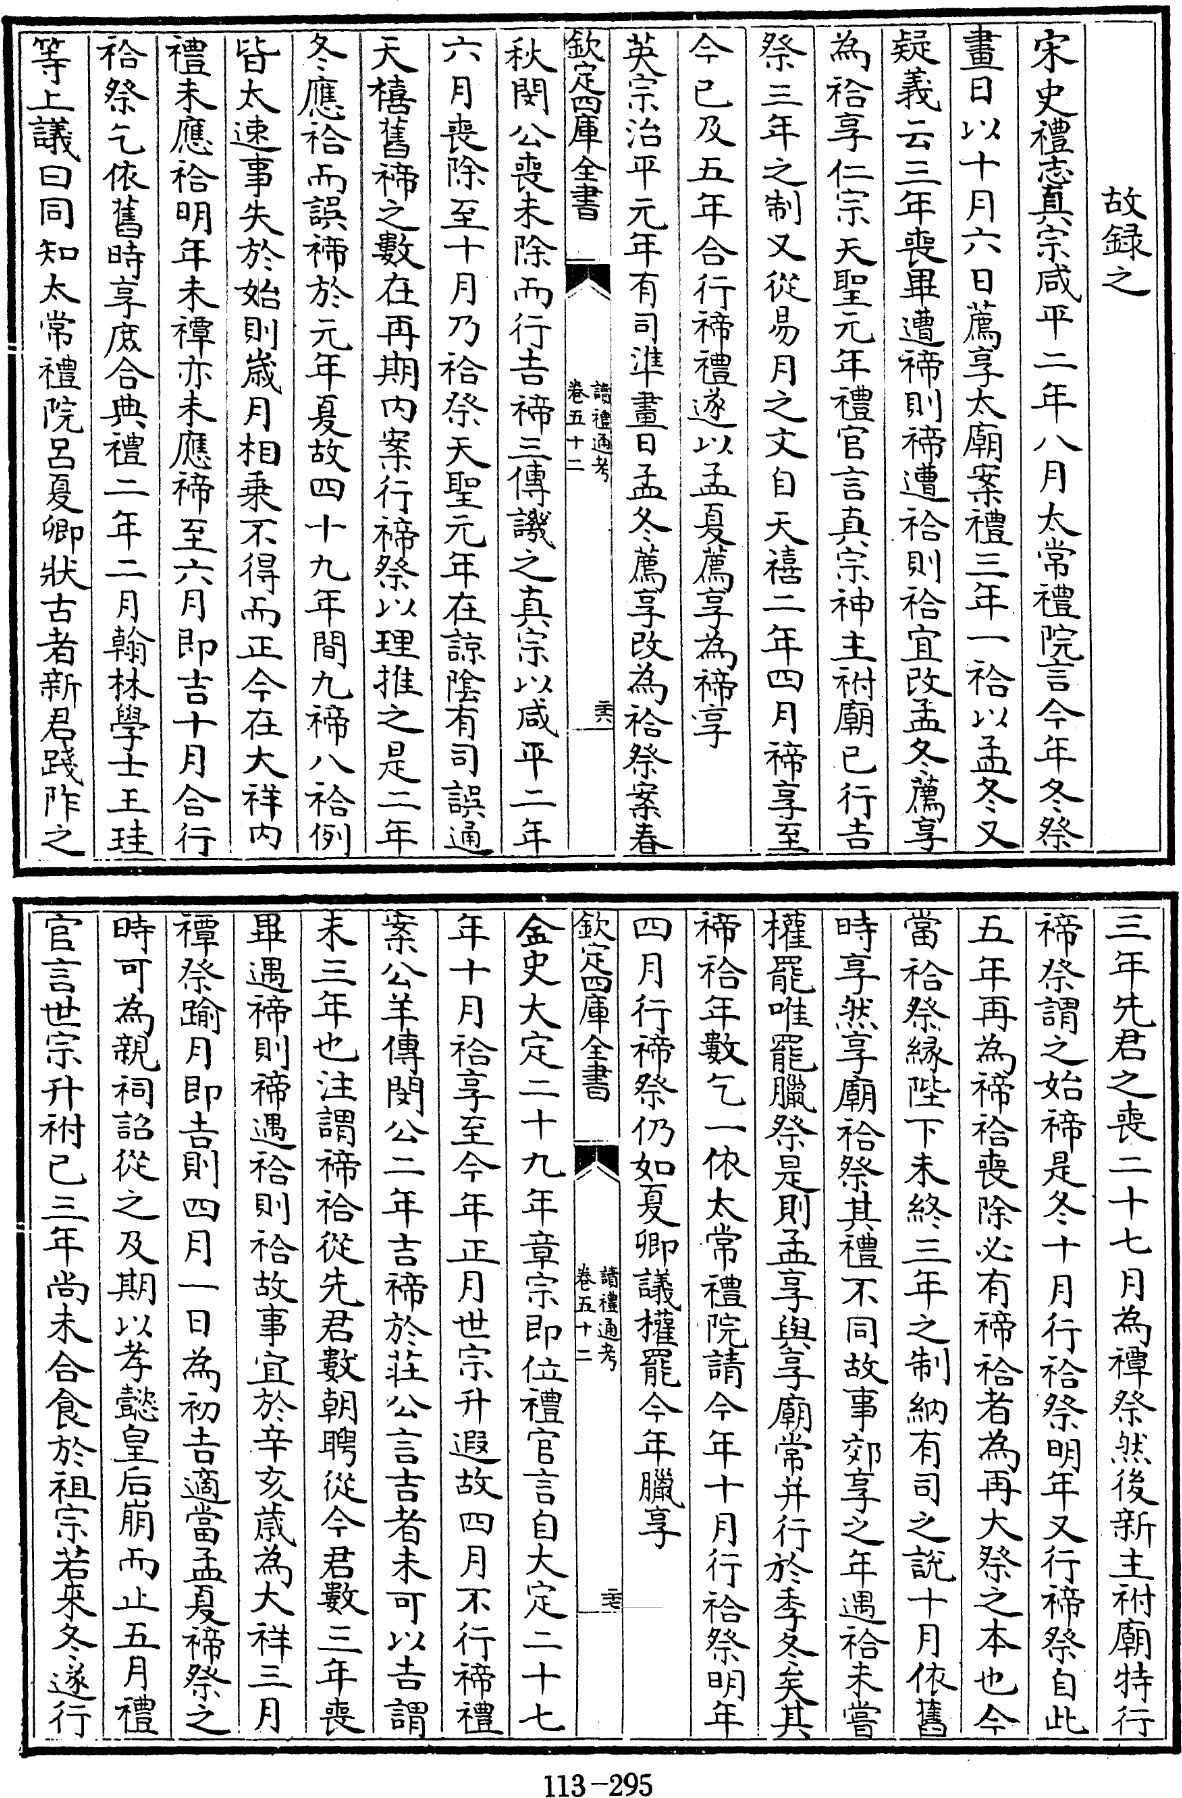 故録之
宋史禮志真宗咸平二年八月太常禮院言今年冬祭
畫日以十月六日薦享太廟案禮三年一祫以孟冬又
疑義云三年喪畢遭禘則禘遭祫則祫宜改孟冬薦享
為祫享仁宗天聖元年禮官言真宗神主祔廟已行吉
祭三年之制又從易月之文自天禧二年四月禘享至
今已及五年合行禘禮遂以孟夏薦享為禘享
英宗治平元年有司準畫日孟冬薦享改為祫祭案春
欽定四庫全書
讀禮通考
卷五十二
三六
秋閔公喪未除而行吉禘三傳譏之真宗以咸平二年
六月喪除至十月乃祫祭天聖元年在諒陰有司誤通
天禧舊禘之數在再期内案行禘祭以理推之是二年
冬應祫而誤禘於元年夏故四十九年間九禘八祫例
皆太速事失於始則歲月相乗不得而正今在大祥内
禮未應祫明年未禫亦未應禘至六月即吉十月合行
祫祭乞依舊時享庶合典禮二年二月翰林學士王珪
等上議曰同知太常禮院呂夏卿狀古者新君踐阼之
三年先君之喪二十七月為禫祭然後新主祔廟特行
禘祭謂之始禘是冬十月行祫祭明年又行禘祭自此
五年再為禘祫喪除必有禘祫者為再大祭之本也今
當祫祭縁陛下未終三年之制納有司之說十月依舊
時享然享廟祫祭其禮不同故事郊享之年遇祫未嘗
權罷唯罷臘祭是則孟享與享廟常并行於季冬矣其
禘祫年數乞一依太常禮院請今年十月行祫祭明年
四月行禘祭仍如夏卿議權罷今年臘享
欽定四庫全書
讀禮通考
卷五十二
三七
金史大定二十九年章宗即位禮官言自大定二十七
年十月祫享至今年正月世宗升遐故四月不行禘禮
案公羊傳閔公二年吉禘於莊公言吉者未可以吉謂
未三年也注謂禘祫從先君數朝聘從今君數三年喪
畢遇禘則禘遇祫則祫故事宜於辛亥歲為大祥三月
禫祭踰月即吉則四月一日為初吉適當孟夏禘祭之
時可為親祠詔從之及期以孝懿皇后崩而止五月禮
官言世宗升祔已三年尚未合食於祖宗若來冬遂行
113-295